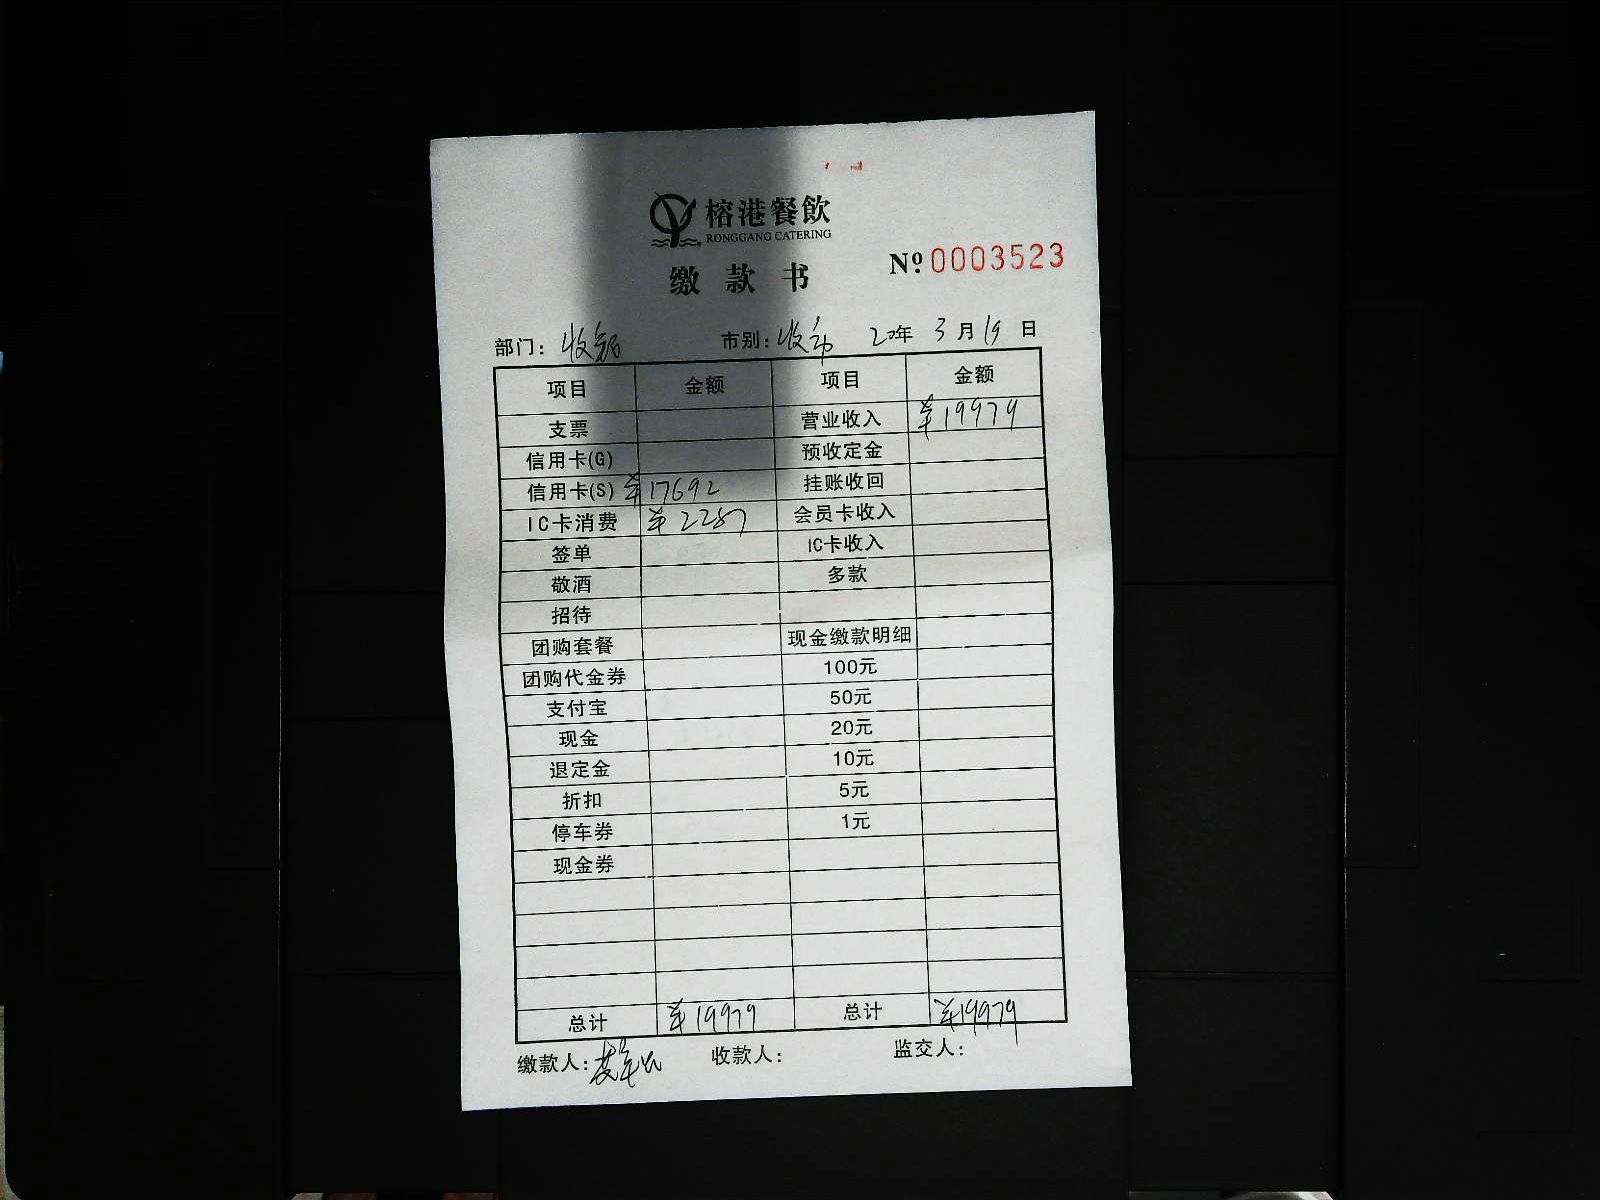 榕港餐飲
RONGGANG CATERING
缴款书
Nº 0003523
部门：收银 市别：收市 20年 3月19日
项目 金额 项目 金额
支票 营业收入 ¥19979
信用卡(G) 预收定金
信用卡(S) ¥17692 挂账收回
IC卡消费 ¥2287 会员卡收入
签单 IC卡收入
敬酒 多款
招待
团购套餐 现金缴款明细
团购代金券 100元
支付宝 50元
现金 20元
退定金 10元
折扣 5元
停车券 1元
现金券
总计 ¥19979 总计 ¥19979
缴款人： 收款人： 监交人：